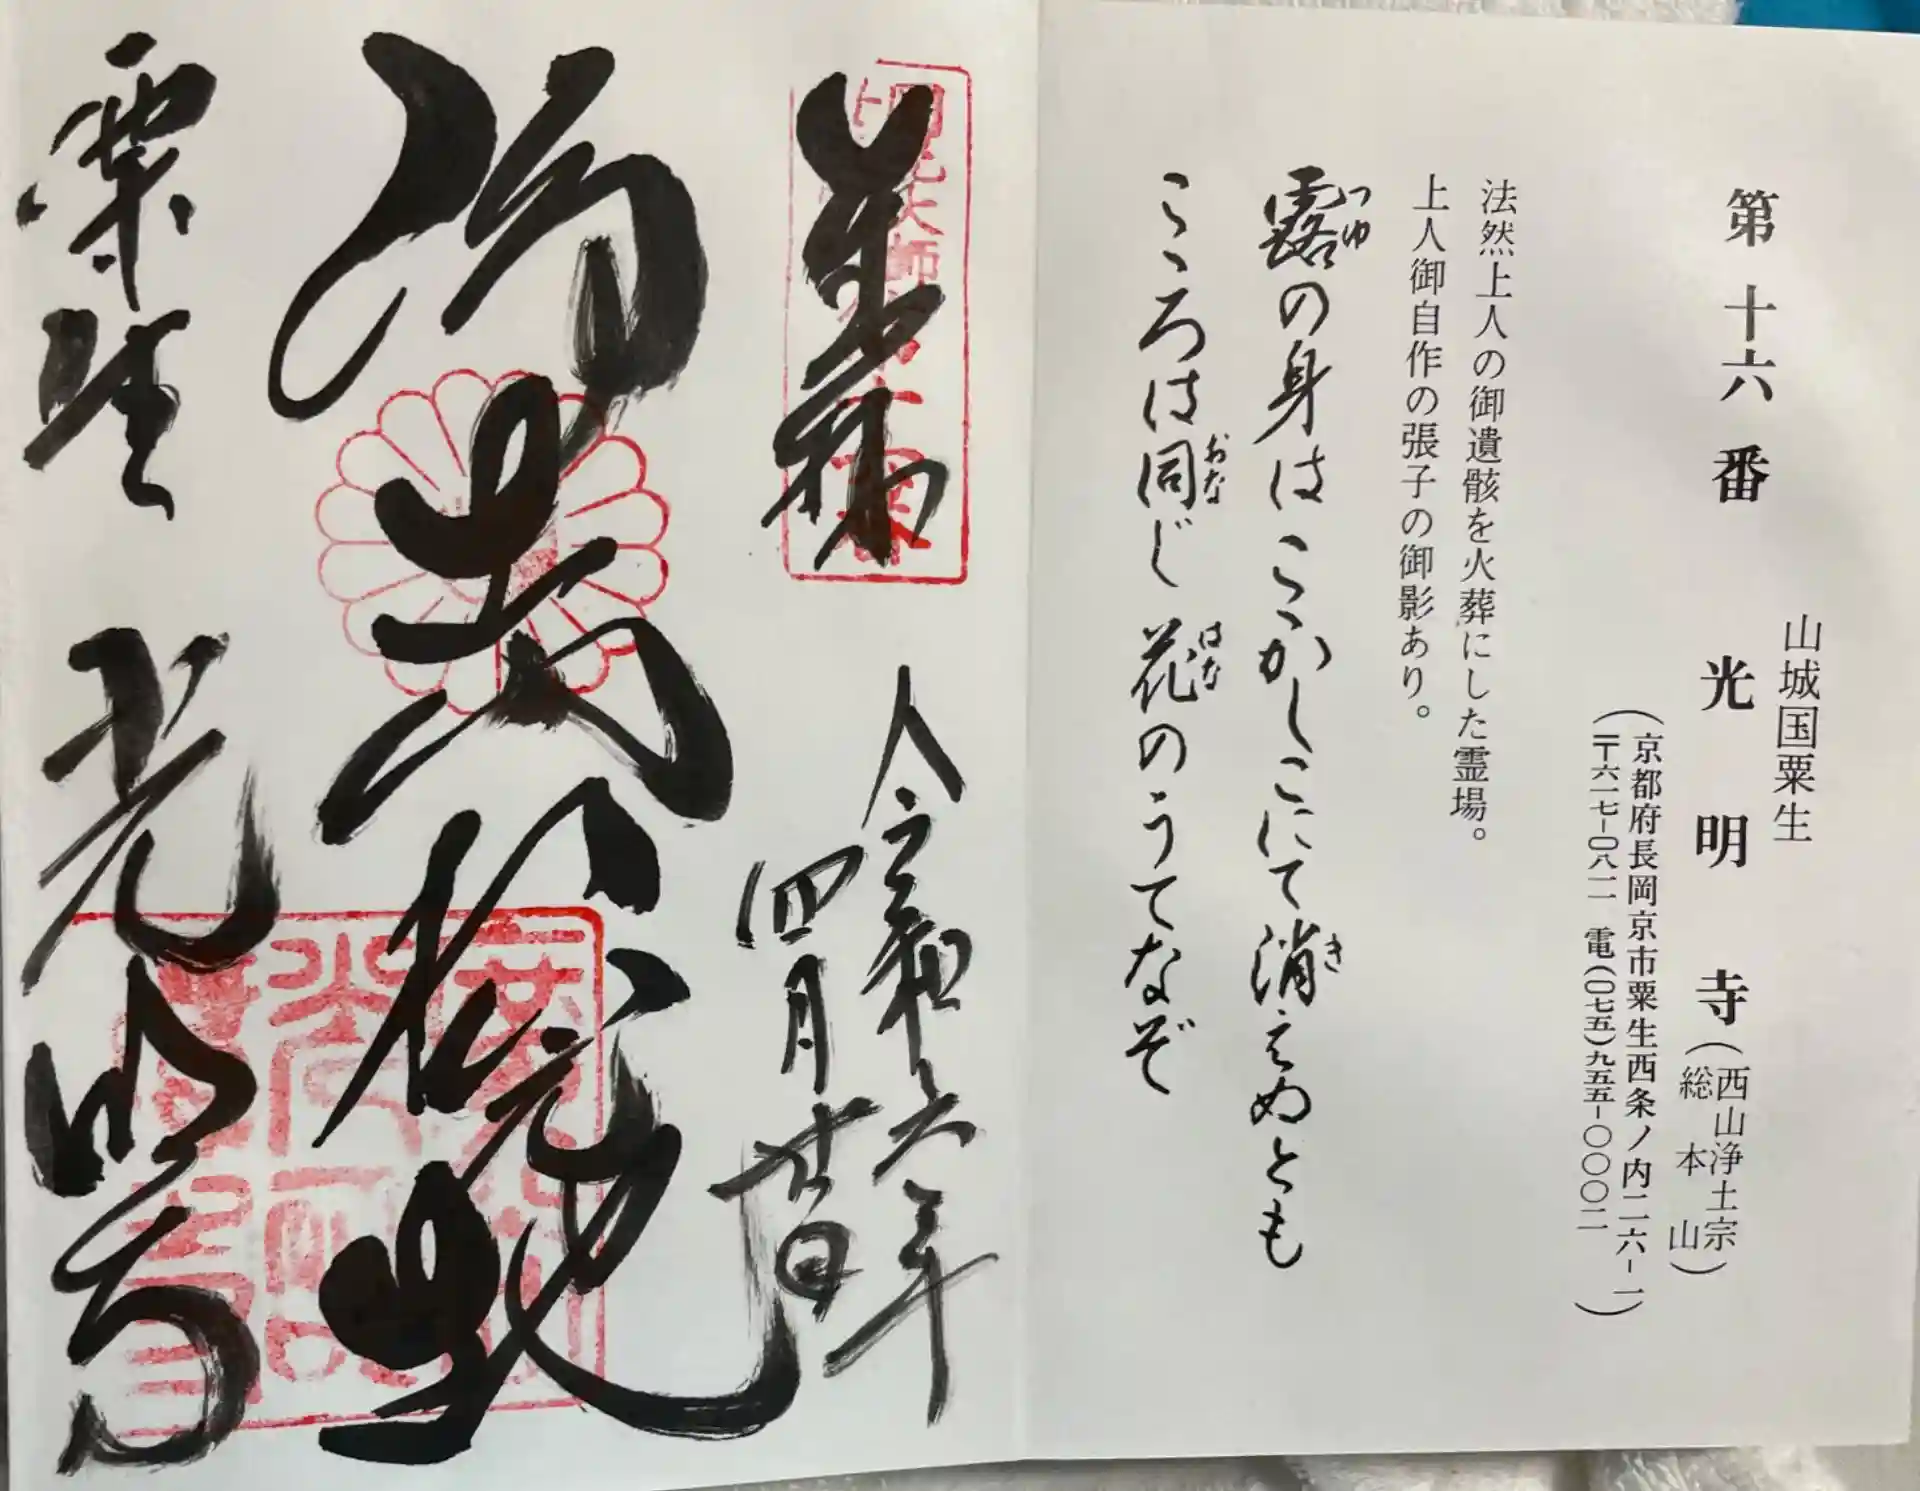 山城国粟生
第十六番 光明寺(西山浄土宗
総本山)
(京都府長岡京市粟生西条ノ内二六-一
〒六一七-〇八一一 電(〇七五)九五五-〇〇〇二)
法然上人の御遺骸を火葬にした霊場。
上人御自作の張子の御影あり。
露の身はこゝかしこにて消えぬとも
こゝろは同じ花のうてなぞ
奉拝
令和六年
四月廿日
粟生 光明寺